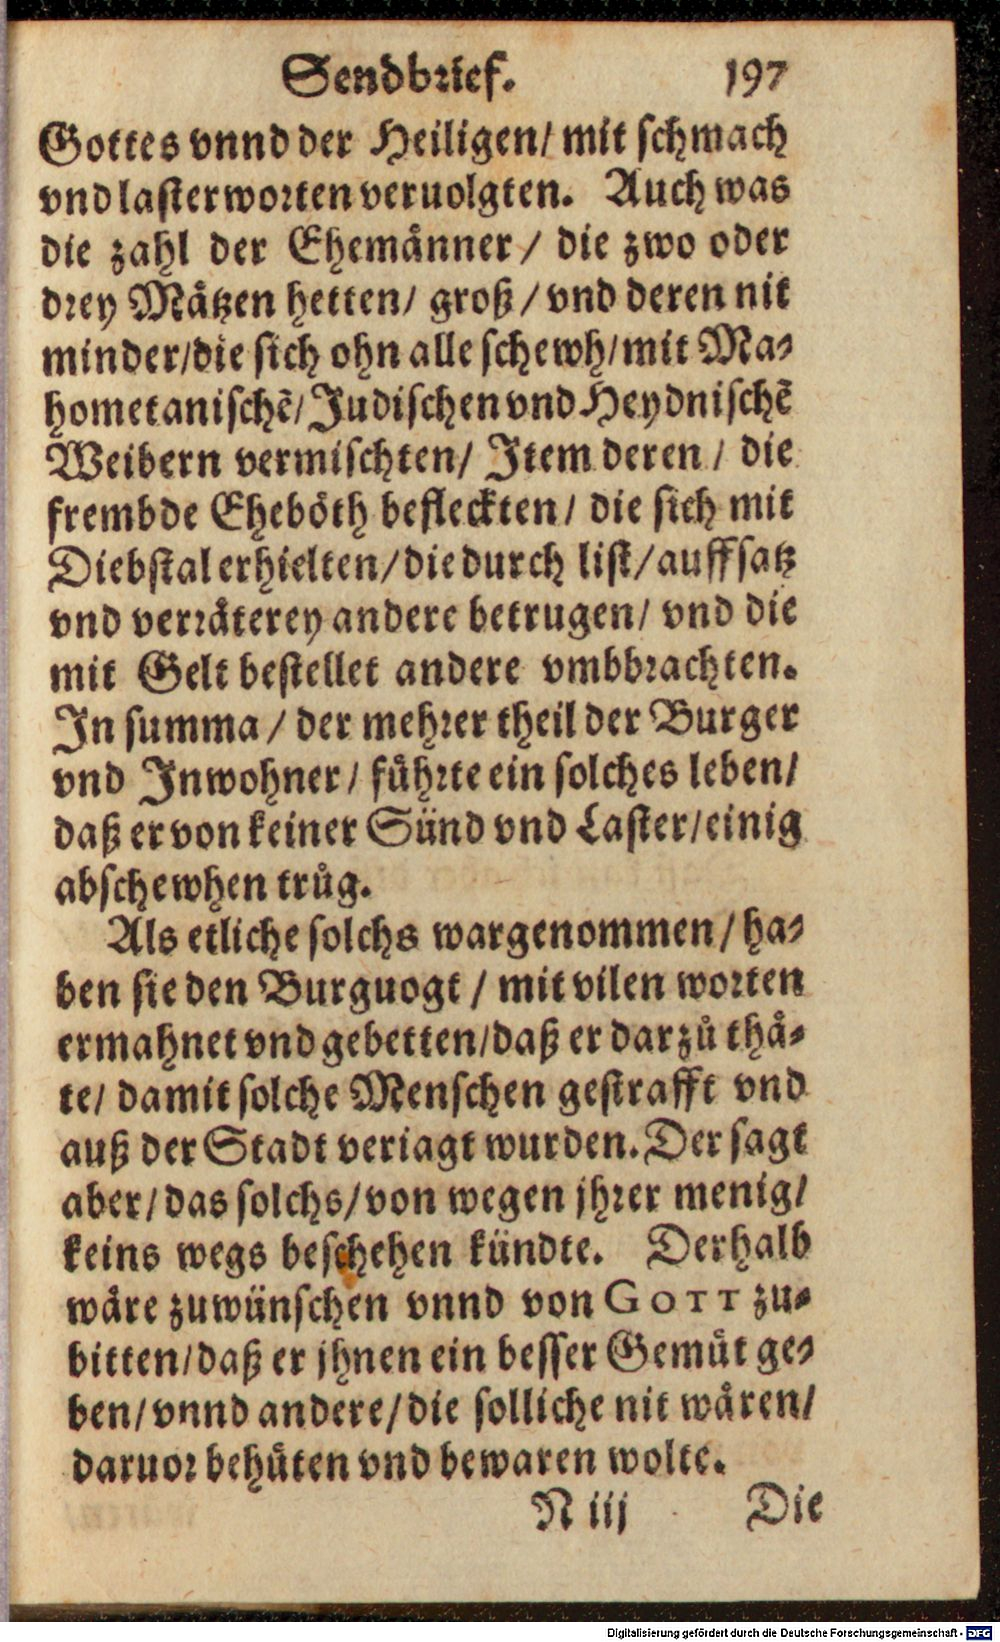 Sendbrief. 197
Gottes vnnd der Heiligen/ mit schmach
vnd lasterworten veruolgten. Auch was
die zahl der Ehemåñner/ die zwo oder
drey Måtzen hetten/ groß/ vnd deren nit
minder/die sich ohn alle schewh/mit Ma-
hometanischẽ/Judischen vnd Heydnischẽ
Weibern vermischten/ Item deren/ die
frembde Ehebôth befleckten/ die sich mit
Diebstal erhielten/die durch list/auffsatz
vnd verråterey andere betrugen/ vnd die
mit Gelt bestellet andere vmbbrachten.
In summa/ der mehrer theil der Burger
vnd Inwohner/ fůhrte ein solches leben/
daß er von keiner Sünd vnd Laster/einig
abschewhen trůg.
Als etliche solchs wargenommen/ha-
ben sie den Burguogt/ mit vilen worten
ermahnet vnd gebetten/daß er darzů thå-
te/ damit solche Menschen gestrafft vnd
auß der Stadt veriagt wurden. Der sagt
aber/das solchs/von wegen jhrer menig/
keins wegs beschehen kündte. Derhalb
wåre zuwünschen vnnd von GOTT zu-
bitten/daß er jhnen ein besser Gemůt ge-
ben/vnnd andere/die solliche nit wåren/
daruor behůten vnd bewaren wolte.
N iij Die
Digitalisierung gefördert durch die Deutsche Forschungsgemeinschaft - DFG